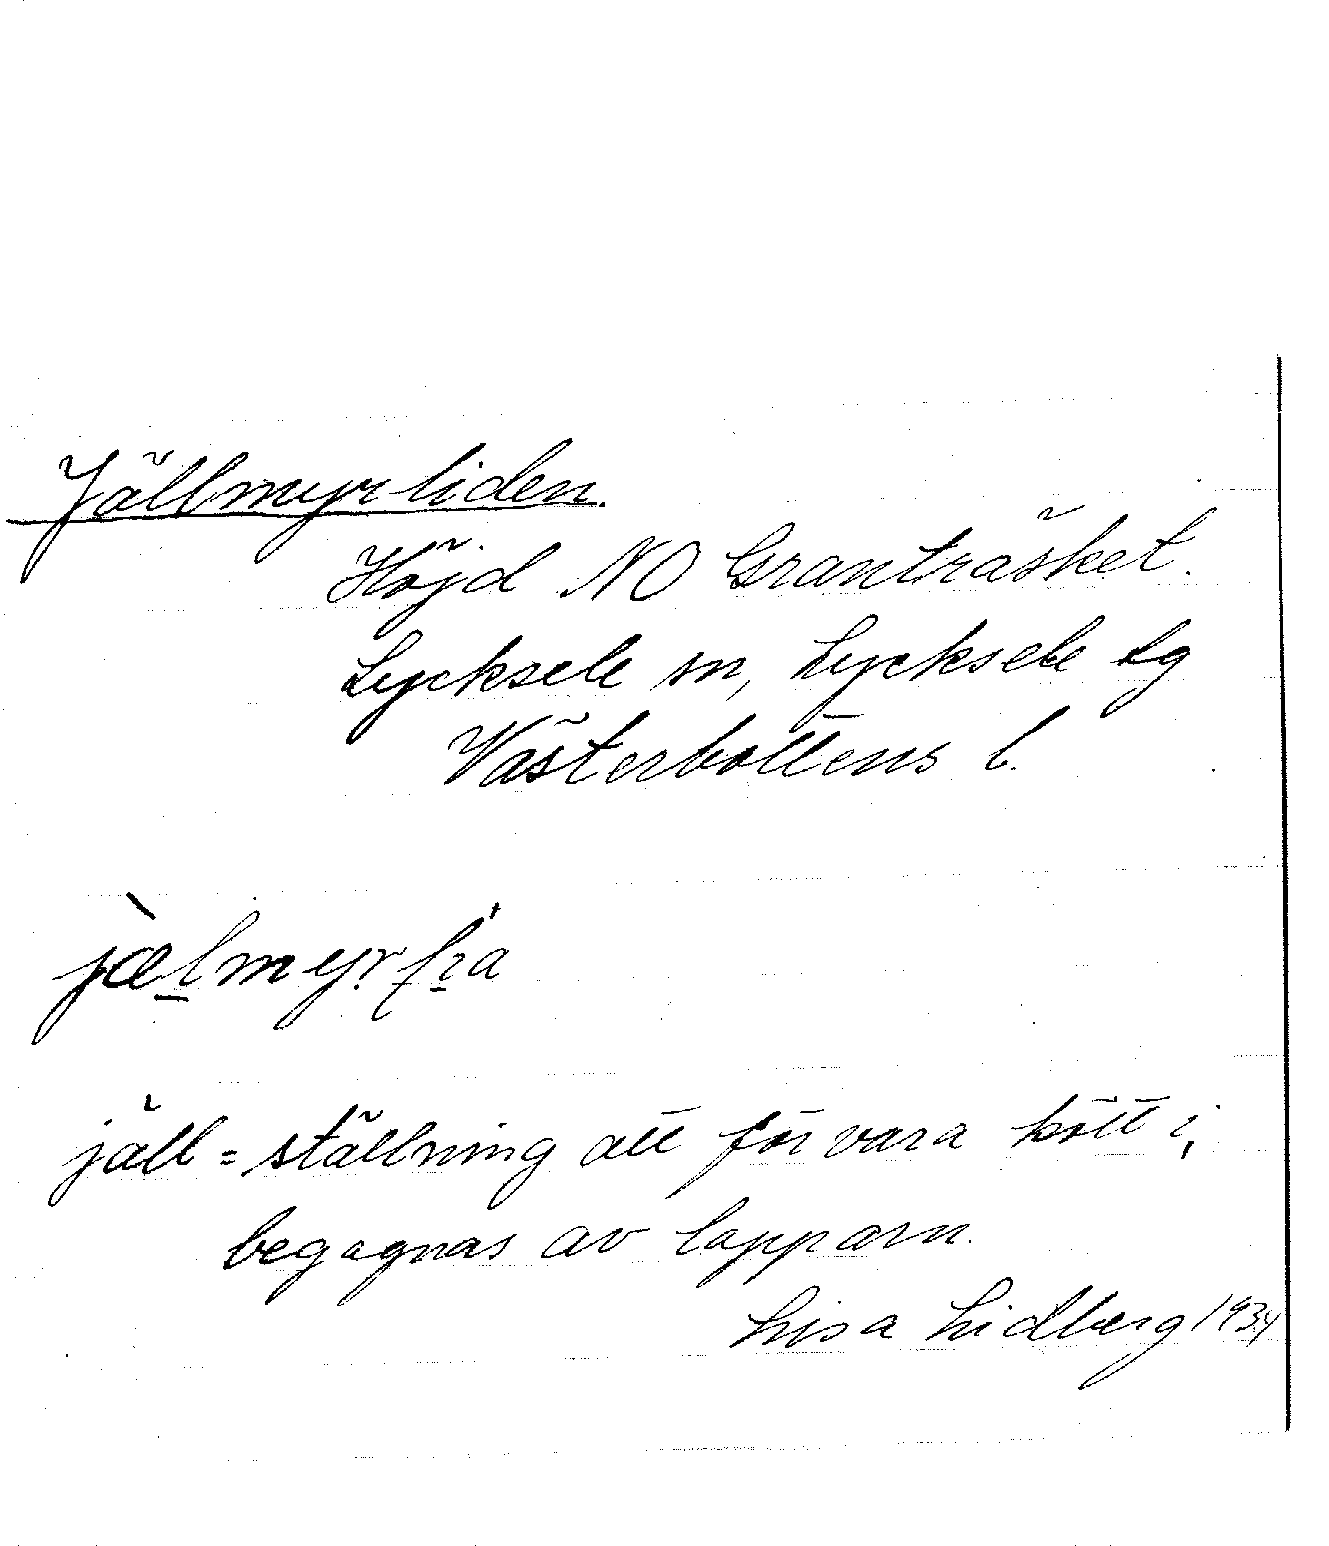 Jällmyrliden.
Höjd NO Granträsket.
Lycksele sn, Lycksele lg
Västerbottens l.
jäll = ställning att förvara kött i,
begagnas av lapparn.
Lisa Lidberg 1934